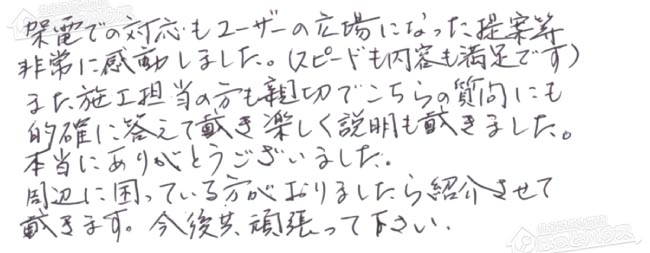 架電での対応もユーザーの広場になった提案等
非常に感動しました。(スピードも内容も満足です)
また施工担当の方も親切でこちらの質問にも
的確に答えて戴き楽しく説明も戴きました。
本当にありがとうございました。
周辺に困っている方がおりましたら紹介させて
戴きます。今後共頑張って下さい.